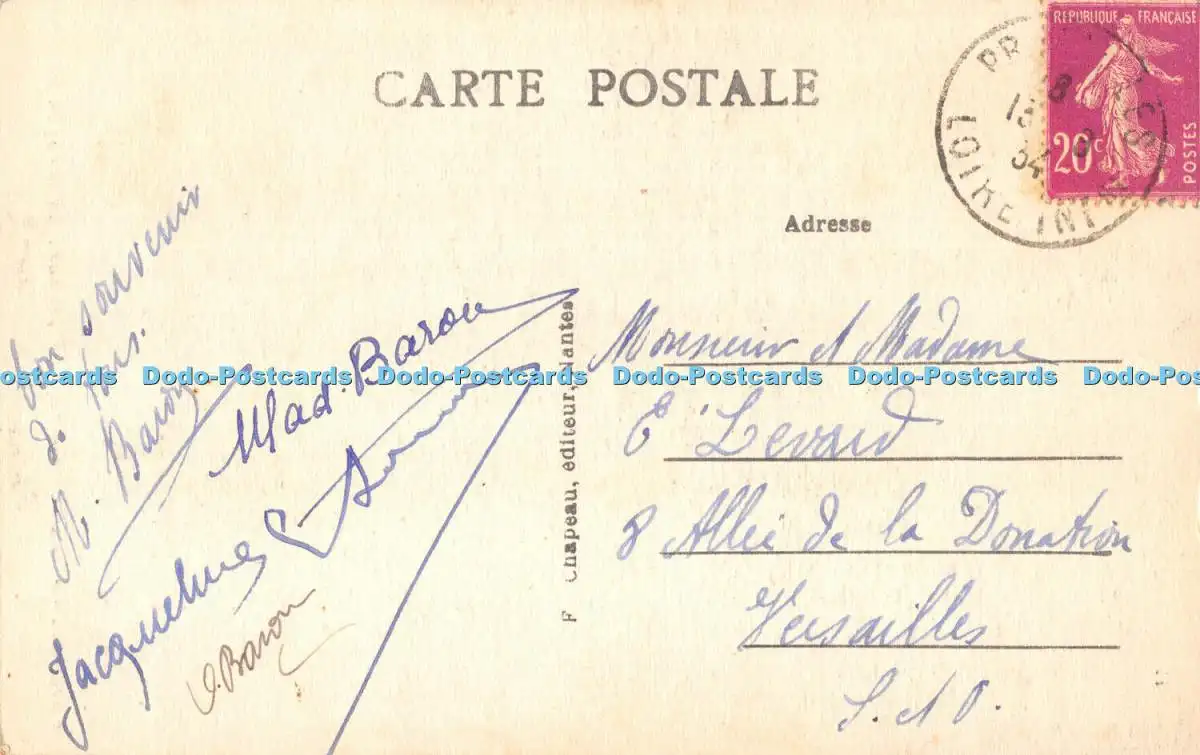 CARTE POSTALE
RÉPUBLIQUE FRANÇAISE
20c
POSTES
LOIRE INFRE
Adresse
bon souvenir
à tous.
M. Baron
Mad. Baron
Jacqueline
Baron
F Chapeau, éditeur, Nantes
Monsieur et Madame
E Levard
8 Allée de la Donation
Versailles
S. et O.
Dodo-Postcards Dodo-Postcards Dodo-Postcards Dodo-Postcards Dodo-Postcards